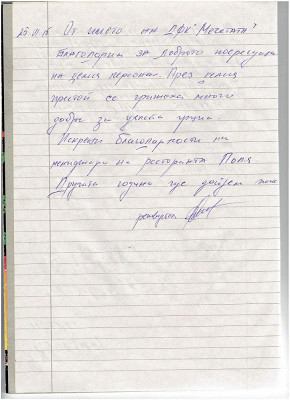 От името на ДФК "Мечтата"
благодарим за доброто посрещане
на целия персонал. През целия
престой се грижеха много
добре за цялата група.
Искрени благодарности на
мениджъра на ресторанта Поля
Другата година ще дойдем пак